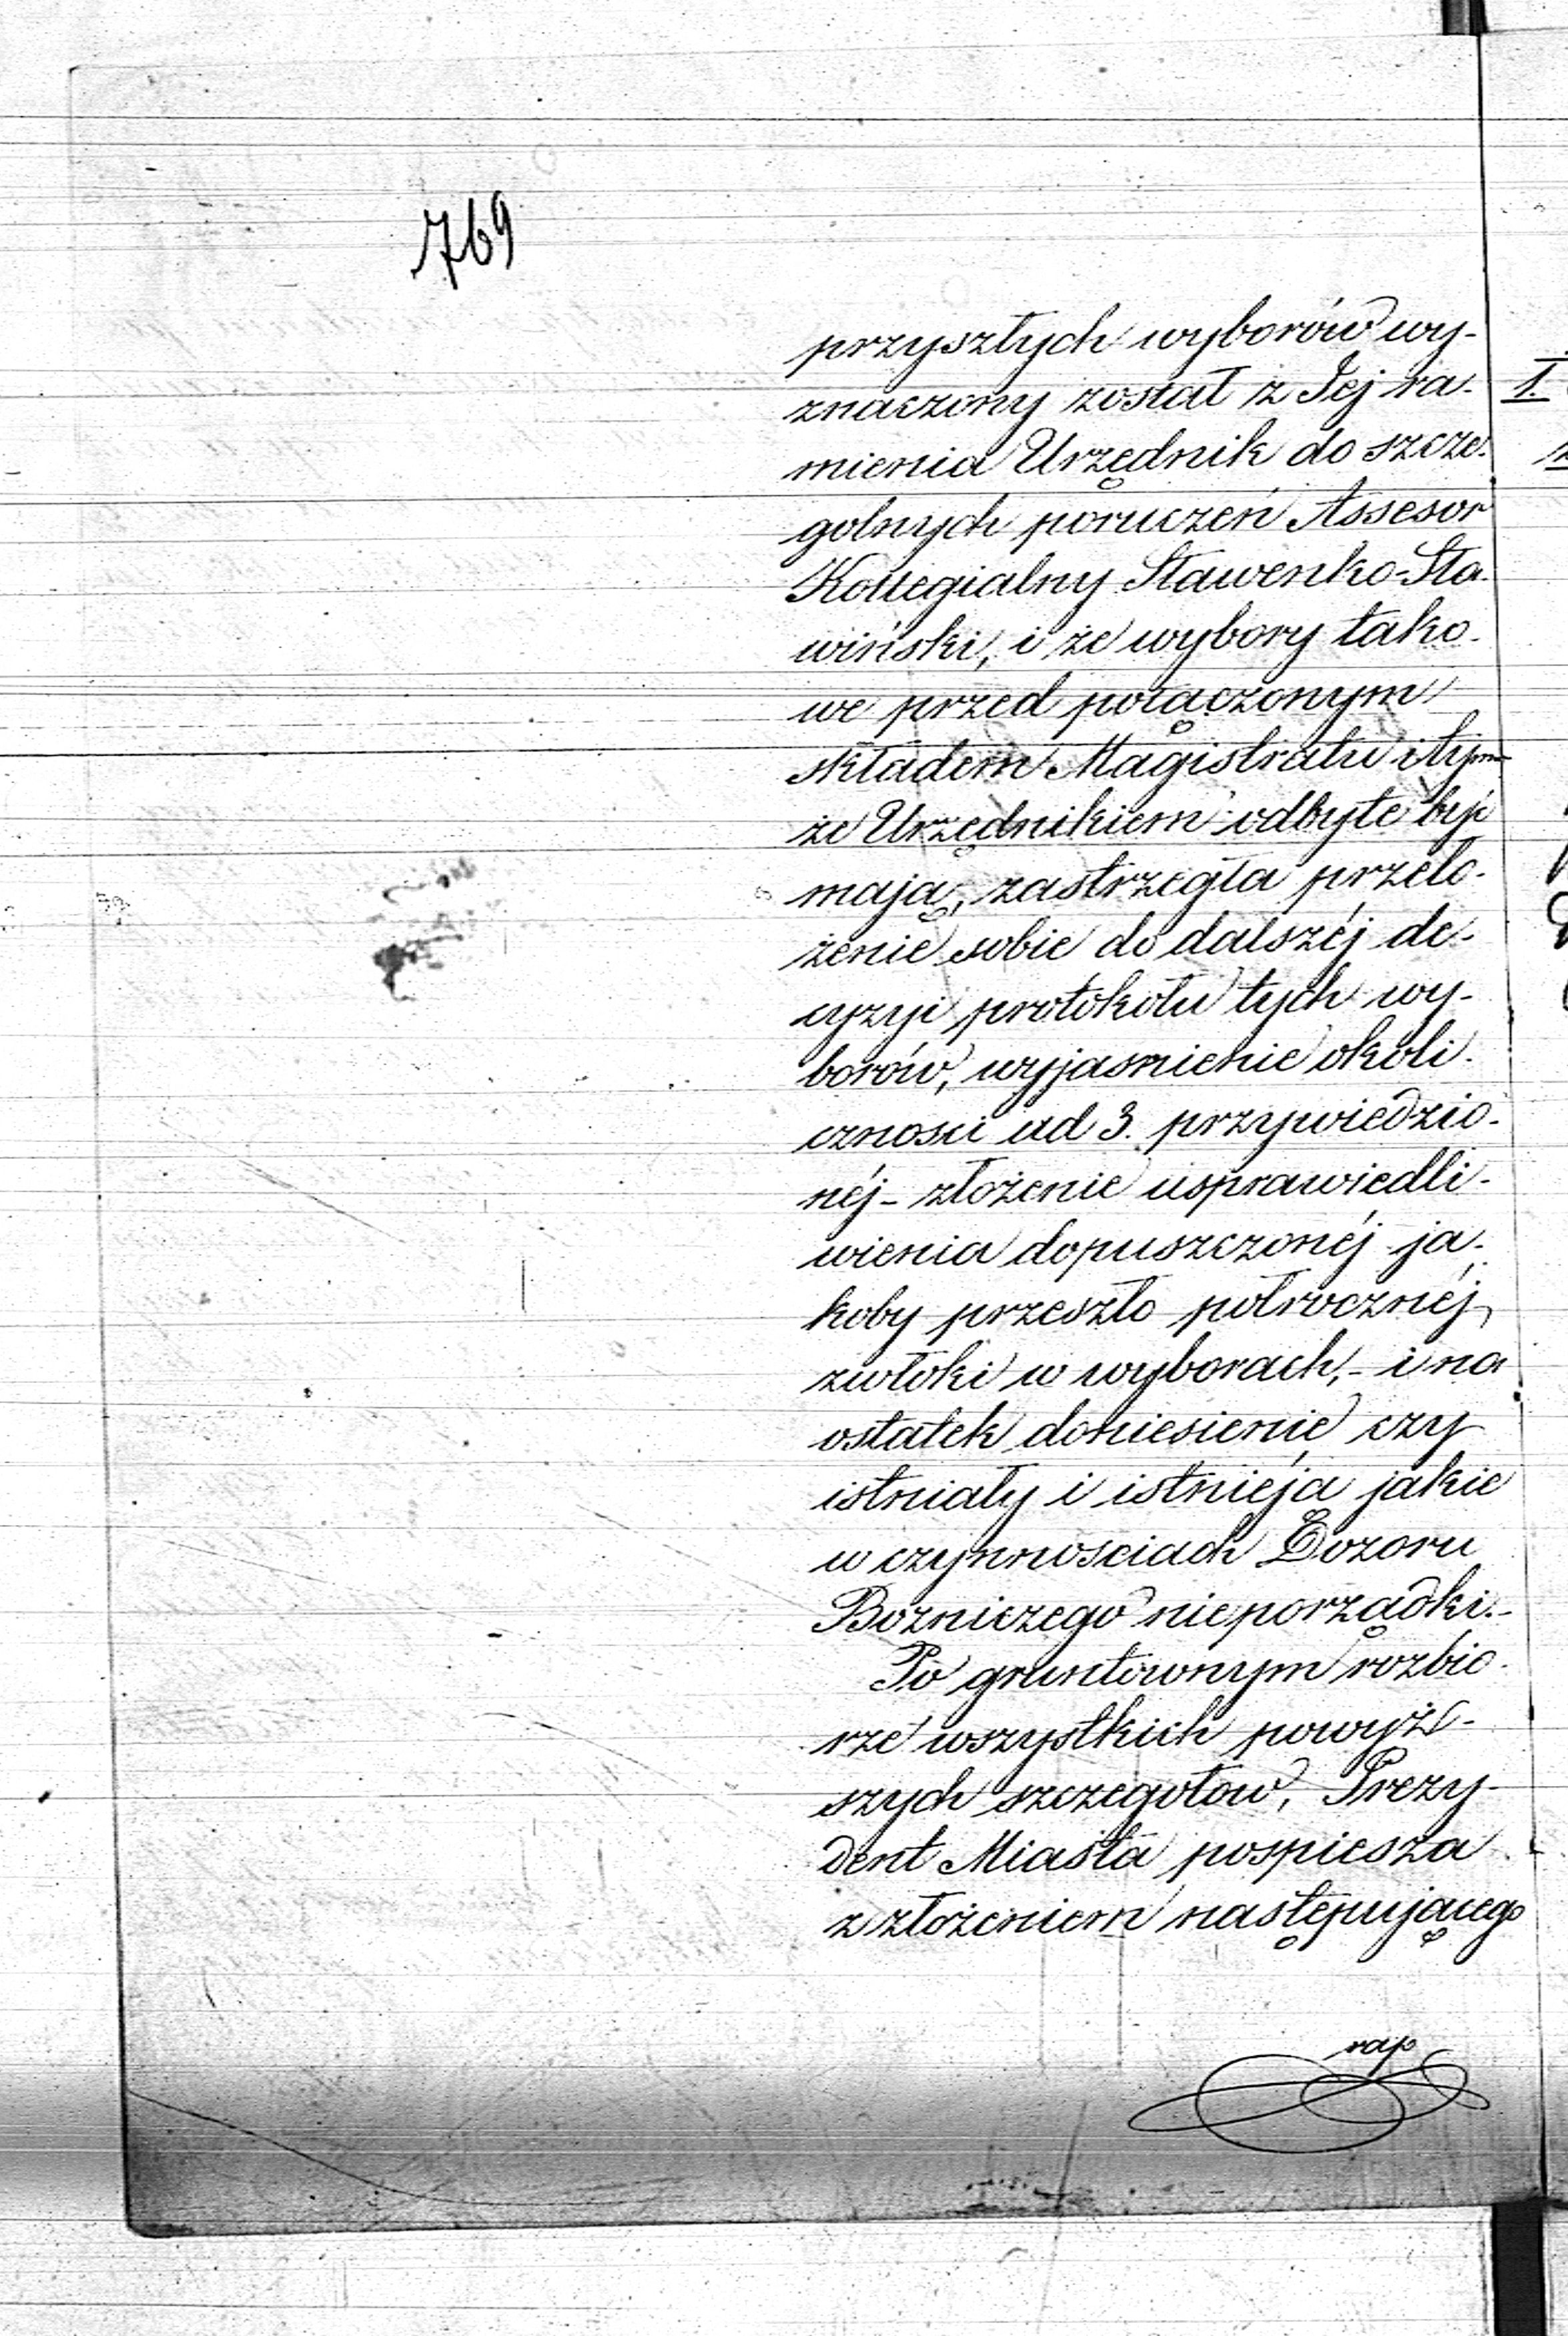 769
przyszłych wyborów wy-
znaczony został z Jej ra-
mienia Urzędnik do szcze-
golnych poruczeń Assesor
Kollegialny Sławenko-Sła-
wiński, i że wybory tako-
we przed połączonym
składem Magistratu i tym-
że Urzędnikiem odbyte być
mają, zastrzegła przeło-
żenie sobie do dalszéj de-
cyzyi protokołu tych wy-
borów, wyjasnienie okoli-
cznosci ad 3. przywiedzio-
néj - złożenie usprawiedli-
wienia dopuszczonéj ja-
koby przeszło półrocznéj
zwłoki w wyborach, - i na
ostatek doniesienie czy
istniały i istnieją jakie
w czynnosciach Dozoru
Bozniczego nieporządki. -
Po gruntownym rozbio-
rze wszystkich powyż-
szych szczegołow, Prezy-
dent Miasta pospiesza
z złożeniem następującego
rap
1.